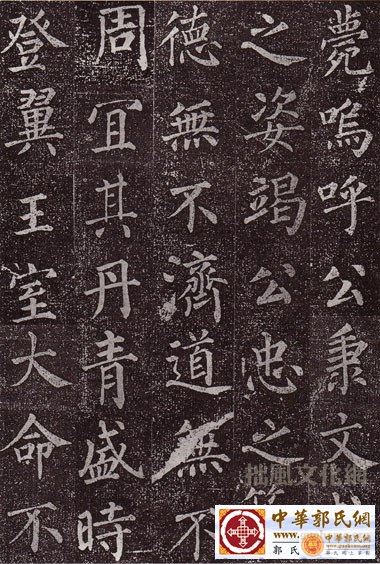 薨嗚呼公秉文
之姿竭公忠之
德無不濟道無不
周冝其丹青盛時
登翼王室大命不
拙風文化網
中華郭氏網